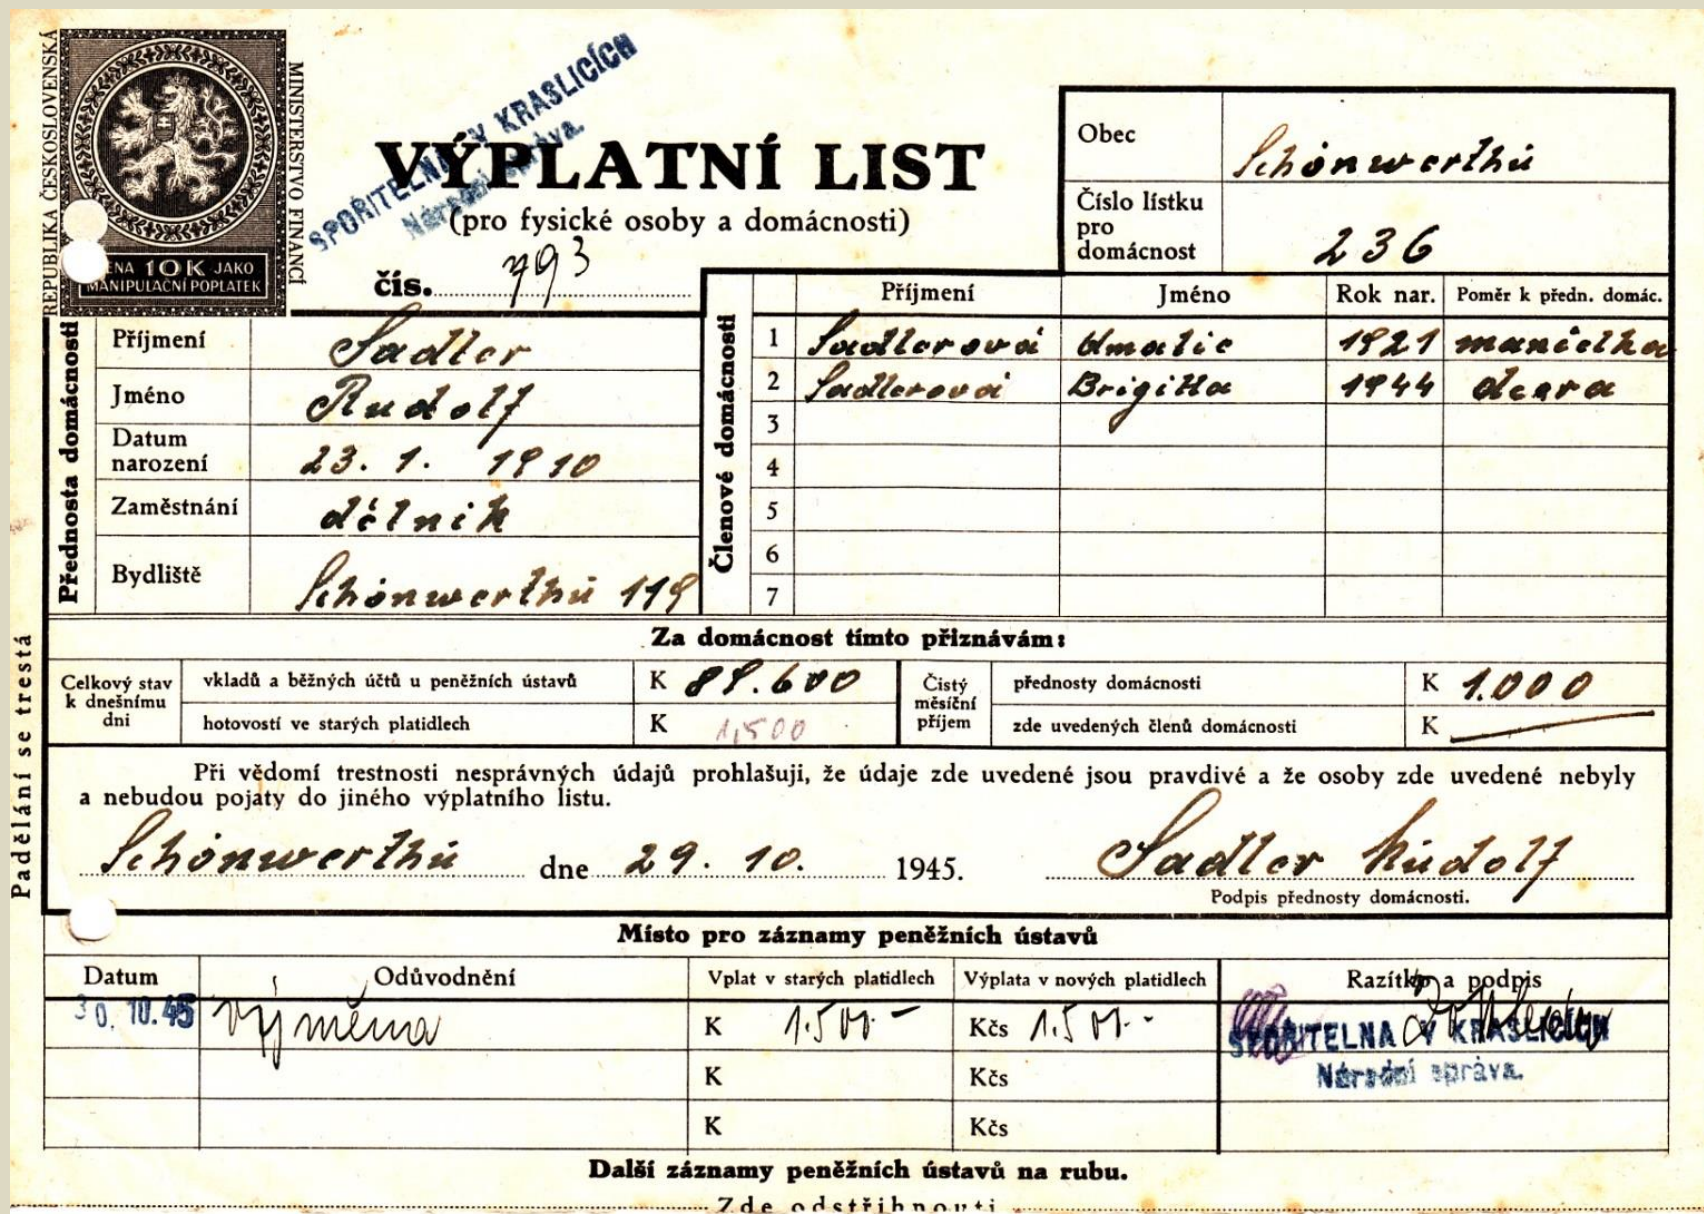 REPUBLIKA ČESKOSLOVENSKÁ
MINISTERSTVO FINANCÍ
ENA 10K JAKO
MANIPULAČNÍ POPLATEK
SPOŘITELNA V KRASLICÍCH
Národní správa.
VÝPLATNÍ LIST
(pro fysické osoby a domácnosti)
čís. 793
Obec Schönwerthú
Číslo lístku pro domácnost 236
Přednosta domácnosti
Příjmení Sadler
Jméno Rudolf
Datum narození 23. 1. 1910
Zaměstnání dělník
Bydliště Schönwerthú 119
Členové domácnosti
Příjmení Jméno Rok nar. Poměr k předn. domác.
1 Sadlerová Amalie 1921 manželka
2 Sadlerová Brigitta 1944 dcera
3
4
5
6
7
Za domácnost tímto přiznávám:
Celkový stav k dnešnímu dni
vkladů a běžných účtů u peněžních ústavů K 89.600
hotovostí ve starých platidlech K 1,500
Čistý měsíční příjem
přednosty domácnosti K 1.000
zde uvedených členů domácnosti K
Při vědomí trestnosti nesprávných údajů prohlašuji, že údaje zde uvedené jsou pravdivé a že osoby zde uvedené nebyly
a nebudou pojaty do jiného výplatního listu.
Schönwerthú dne 29. 10. 1945. Sadler Rudolf
Podpis přednosty domácnosti.
Padělání se trestá
Místo pro záznamy peněžních ústavů
Datum Odůvodnění Vplat v starých platidlech Výplata v nových platidlech Razítko a podpis
30. 10. 45 výměna K 1.500.- Kčs 1.500.-
SPOŘITELNA V KRASLICÍCH
Národní správa.
K Kčs
K Kčs
Další záznamy peněžních ústavů na rubu.
Zde odstřihnouti